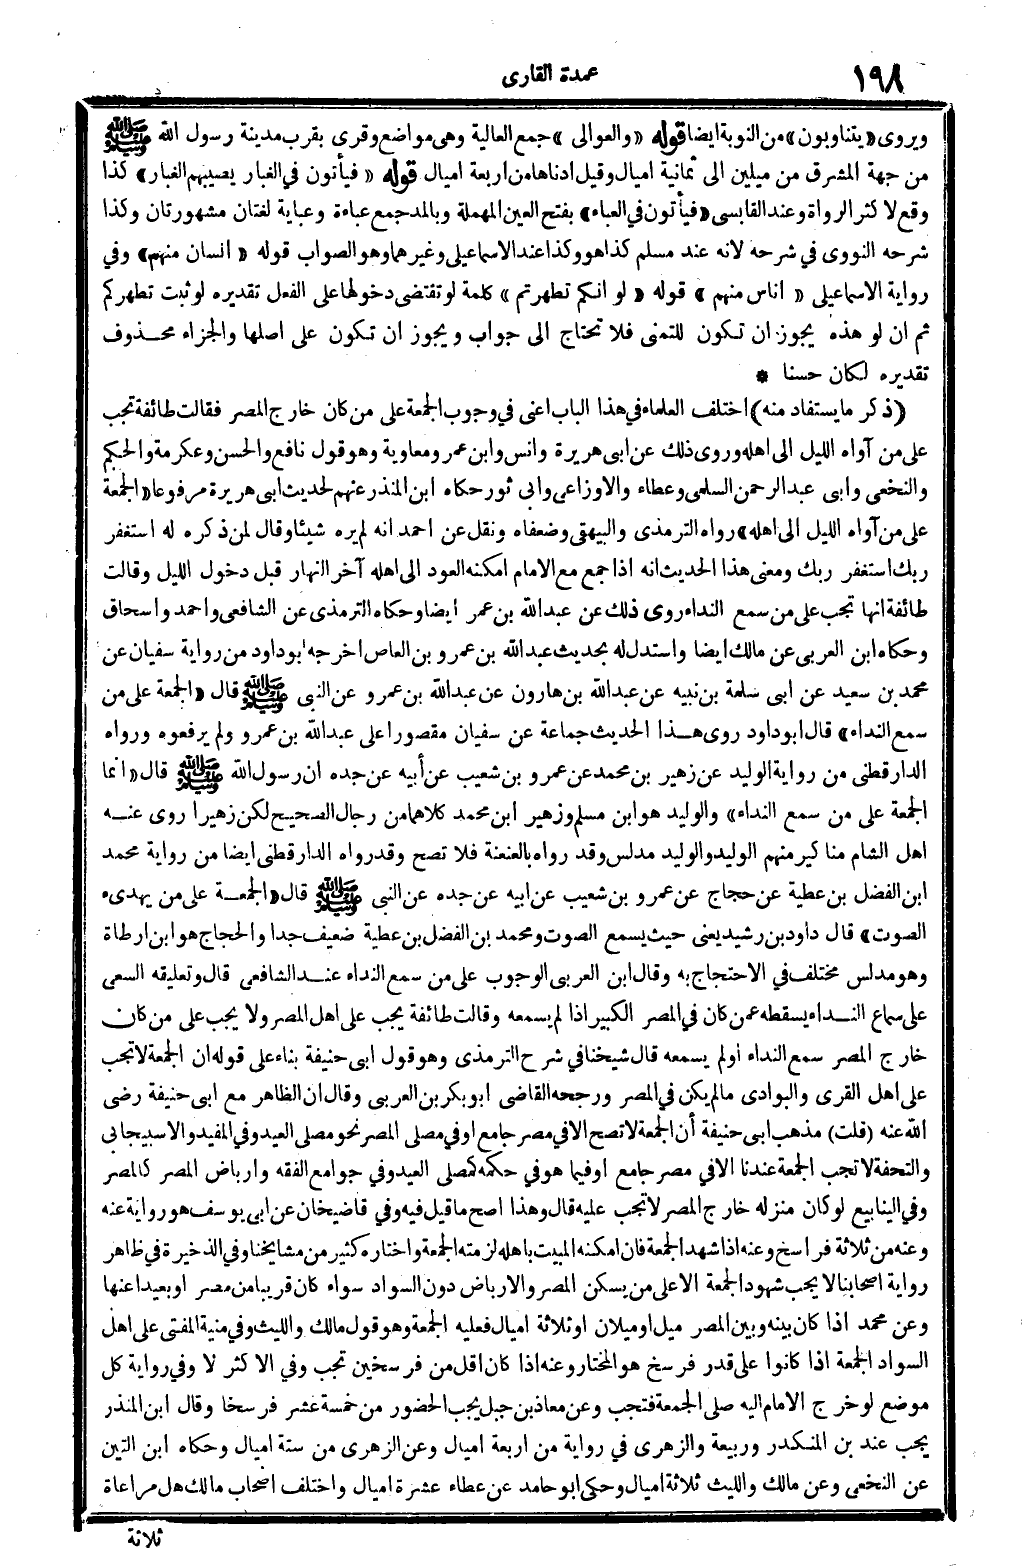 ١٩٨
عمدة القارى
ويروى «يتناوبون» من النوبة ايضا قوله «والعوالى» جمع العالية وهى مواضع وقرى بقرب مدينة رسول الله ﷺ
من جهة المشرق من ميلين الى ثمانية اميال وقيل ادناها من أربعة اميال قوله «فيأتون فى الغبار يصيبهم الغبار» كذا
وقع لا كثر الرواة وعند القابسى «فيأتون فى العباء» بفتح العين المهملة وبالمد جمع عباءة وعباية لغتان مشهورتان وكذا
شرحه النووى في شرحه لانه عند مسلم كذا هو وكذا عند الاسماعيلى وغيرهما وهو الصواب قوله «انسان منهم» وفي
رواية الاسماعيلى «اناس منهم» قوله «لو انكم تطهرتم» كلمة لو تقتضى دخولها على الفعل تقديره لو ثبت تطهركم
ثم ان لو هذه يجوز ان تكون للتمنى فلا تحتاج الى جواب ويجوز ان تكون على اصلها والجزاء محذوف
تقديره لكان حسنا *
(ذكر ما يستفاد منه) اختلف العلماء في هذا الباب اعنى في وجوب الجمعة على من كان خارج المصر فقالت طائفة تجب
على من آواه الليل الى اهله وروى ذلك عن ابى هريرة وانس وابن عمر ومعاوية وهو قول نافع والحسن وعكرمة والحكم
والنخعى وابى عبد الرحمن السلمى وعطاء والاوزاعى وابى ثور حكاه ابن المنذر عنهم لحديث ابى هريرة مرفوعا «الجمعة
على من آواه الليل الى اهله» رواه الترمذى والبيهقى وضعفاه ونقل عن احمد انه لم يره شيئا وقال لمن ذكره له استغفر
ربك استغفر ربك ومعنى هذا الحديث انه اذا جمع مع الامام امكنه العود الى اهله آخر النهار قبل دخول الليل وقالت
طائفة انها تجب على من سمع النداء روى ذلك عن عبد الله بن عمر ايضا وحكاه الترمذى عن الشافعى واحمد واسحاق
وحكاه ابن العربى عن مالك ايضا واستدل له بحديث عبد الله بن عمرو بن العاص اخرجه ابو داود من رواية سفيان عن
محمد بن سعيد عن ابى سلمة بن نبيه عن عبد الله بن هارون عن عبد الله بن عمرو عن النبى ﷺ قال «الجمعة على من
سمع النداء» قال ابو داود روى هذا الحديث جماعة عن سفيان مقصورا على عبد الله بن عمرو ولم يرفعوه ورواه
الدارقطنى من رواية الوليد عن زهير بن محمد عن عمرو بن شعيب عن أبيه عن جده ان رسول الله ﷺ قال «انما
الجمعة على من سمع النداء» والوليد هو ابن مسلم وزهير ابن محمد كلاهما من رجال الصحيح لكن زهيرا روى عنه
اهل الشام مناكير منهم الوليد والوليد مدلس وقد رواه بالعنعنة فلا تصح وقد رواه الدارقطنى ايضا من رواية محمد
ابن الفضل بن عطية عن حجاج عن عمرو بن شعيب عن ابيه عن جده عن النبى ﷺ قال «الجمعة على من بهدىء
الصوت» قال داود بن رشيد يعنى حيث يسمع الصوت ومحمد بن الفضل بن عطية ضعيف جدا والحجاج هو ابن ارطاة
وهو مدلس مختلف في الاحتجاج به وقال ابن العربى الوجوب على من سمع النداء عند الشافعى قال وتعليقه السعى
على سماع النداء يسقطه عمن كان في المصر الكبير اذا لم يسمعه وقالت طائفة يجب على اهل المصر ولا يجب على من كان
خارج المصر سمع النداء أو لم يسمعه قال شيخنا في شرح الترمذى وهو قول ابى حنيفة بناء على قوله ان الجمعة لا تجب
على اهل القرى والبوادى مالم يكن في المصر ورجحه القاضى ابو بكر بن العربى وقال ان الظاهر مع ابى حنيفة رضى
الله عنه (قلت) مذهب ابى حنيفة أن الجمعة لا تصح الا في مصر جامع او في مصلى المصر نحو مصلى العيد وفي المفيد والاسبيجابى
والتحفة لا تجب الجمعة عندنا الا في مصر جامع او فيما هو في حكمه كمصلى العيد وفي جوامع الفقه وارباض المصر كالمصر
وفي الينابيع لو كان منزله خارج المصر لا تجب عليه قال وهذا اصح ما قيل فيه وفي قاضيخان عن ابى يوسف هو رواية عنه
وعنه من ثلاثة فراسخ وعنه اذا شهد الجمعة فان امكنه المبيت باهله لزمته الجمعة واختاره كثير من مشايخنا وفي الذخيرة في ظاهر
رواية اصحابنا لا يجب شهود الجمعة الا على من يسكن المصر والارباض دون السواد سواء كان قريبا من مصر او بعيدا عنها
وعن محمد اذا كان بينه وبين المصر ميل او ميلان او ثلاثة اميال فعليه الجمعة وهو قول مالك والليث وفي منية المفتى على اهل
السواد الجمعة اذا كانوا على قدر فرسخ هو المختار وعنه اذا كان اقل من فرسخين تجب وفي الاكثر لا وفي رواية كل
موضع لو خرج الامام اليه صلى الجمعة فتجب وعن معاذ بن جبل يجب الحضور من خمسة عشر فرسخا وقال ابن المنذر
يجب عند بن المنكدر وربيعة والزهرى في رواية من اربعة اميال وعن الزهرى من ستة اميال وحكاه ابن التين
عن النخعى وعن مالك والليث ثلاثة اميال وحكى ابو حامد عن عطاء عشرة اميال واختلف اصحاب مالك هل مراعاة
ثلاثة